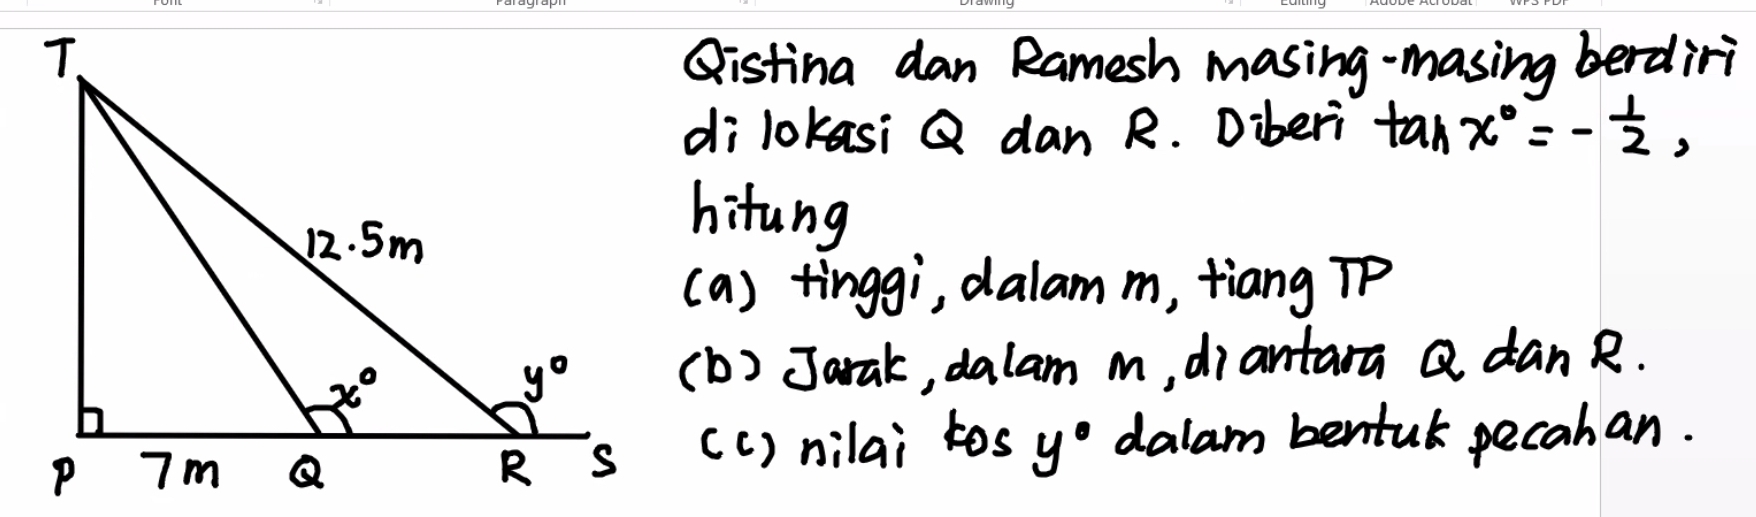 Font Paragraph Drawing Editing Adobe Acrobat WPS PDF
T
12.5m
x°
y°
P 7m Q R S
Qistina dan Ramesh masing-masing berdiri
di lokasi Q dan R. Diberi tan x° = - 1/2 ,
hitung
(a) tinggi, dalam m, tiang TP
(b) Jarak, dalam m, di antara Q dan R.
(c) nilai kos y° dalam bentuk pecahan.